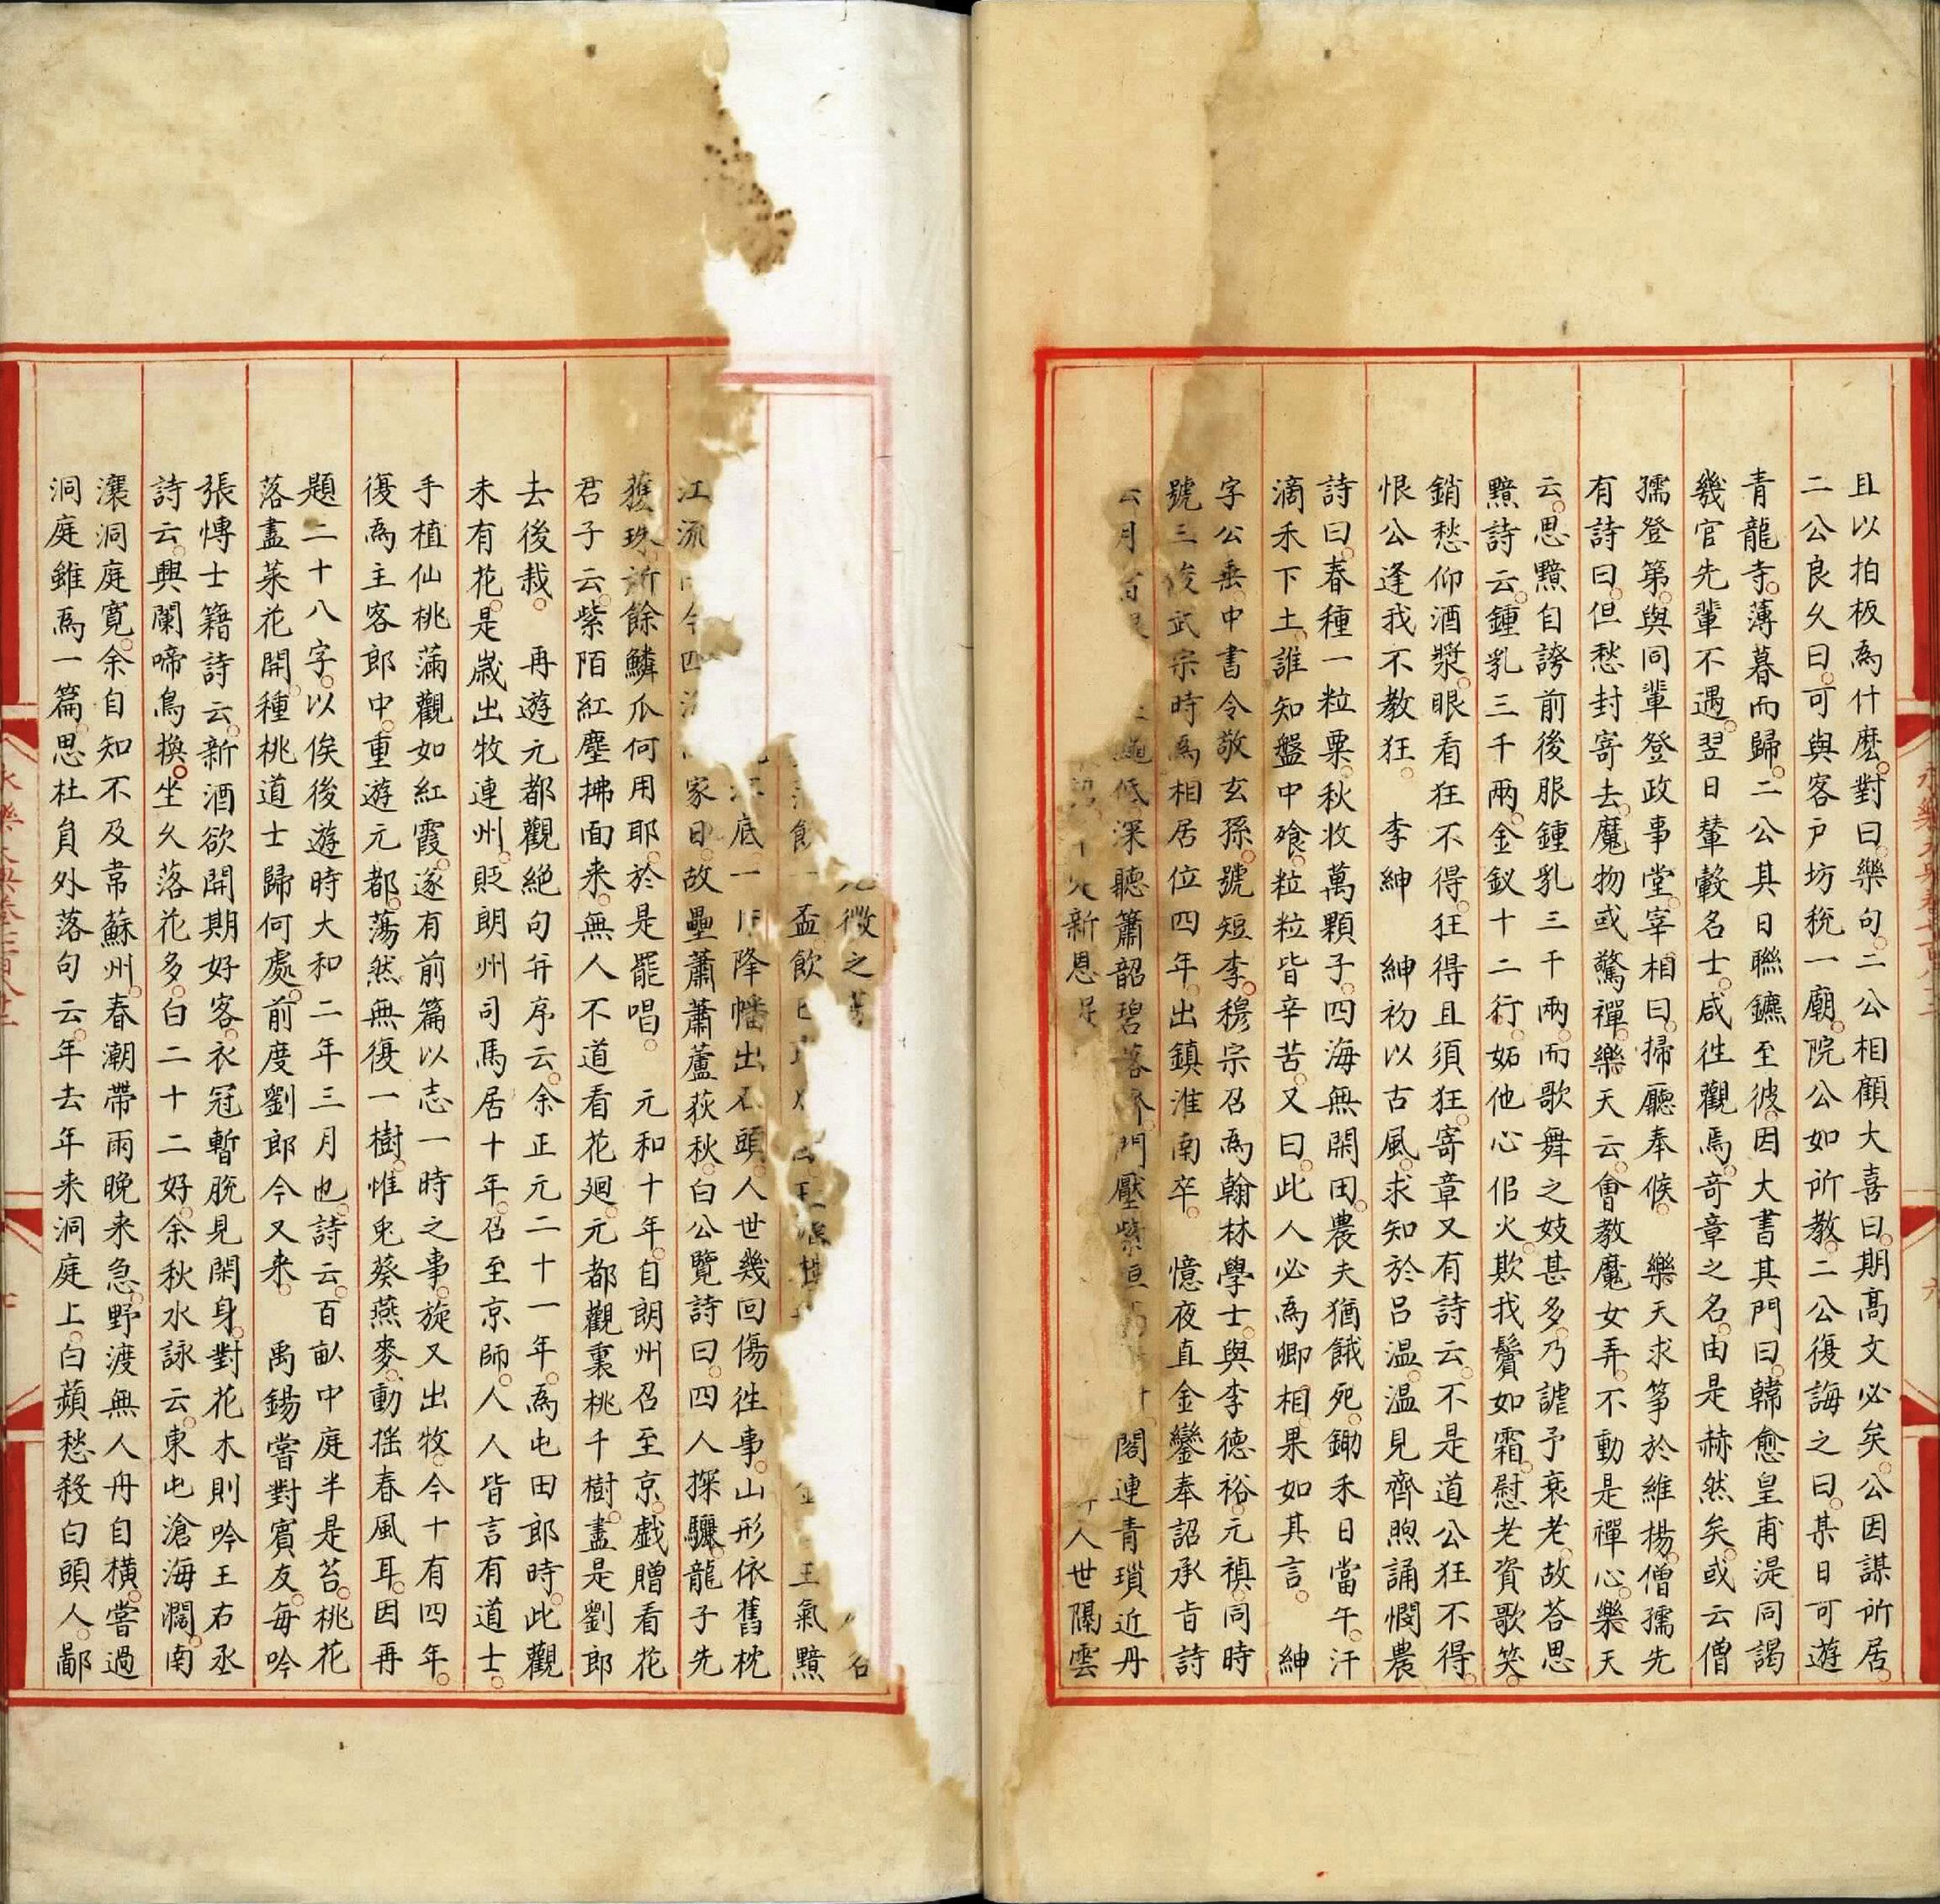 且以拍板為什麽對曰樂句二公相顧大喜曰期高文必矣公因謀所居
二公良久曰可與客戶坊稅一廟院公如所教二公復誨之曰某日可遊
青龍寺薄暮而歸二公其日聯鑣至彼因大書其門曰韓愈皇甫湜同謁
幾官先輩不遇翌日輦轂名士咸徃觀焉奇章之名由是赫然矣或云僧
孺登第與同輩登政事堂宰相曰掃廳奉候 樂天求箏於維楊僧孺先
有詩曰但愁封寄去魔物或驚禪樂天云會教魔女弄不動是禪心樂天
云思黯自誇前後服鍾乳三千兩而歌舞之妓甚多乃謔予衰老故荅思
黯詩云鍾乳三千兩金釵十二行妬他心佀火欺我鬢如霜慰老資歌笑
銷愁仰酒漿眼看狂不得狂得且須狂寄章又有詩云不是道公狂不得
恨公逢我不教狂 李紳 紳初以古風求知於呂温温見齊煦誦憫農
詩曰春種一粒粟秋收萬顆子四海無閑田農夫猶餓死鋤禾日當午汗
滴禾下土誰知盤中飱粒粒皆辛苦又曰此人必為卿相果如其言 紳
字公垂中書令敬玄孫號短李穆宗召為翰林學士與李德裕元禎同時
號三俊武宗時為相居位四年出鎮淮南卒 憶夜直金鑾奉詔承旨詩
云月 低深聽簫韶碧落 門壓紫 閣連青瑣近丹
新恩 人世隔雲
微之 名
盃飲 王氣黯
底一 降幡出石頭人世幾回傷徃事山形依舊枕
江流 今四 家日故壘蕭蕭蘆荻秋白公覽詩曰四人探驪龍子先
獲珠所餘鱗爪何用耶於是罷唱 元和十年自朗州召至京戲贈看花
君子云紫陌紅塵拂面来無人不道看花迴元都觀裏桃千樹盡是劉郎
去後栽 再遊元都觀絕句并序云余正元二十一年為屯田郎時此觀
未有花是歲出牧連州貶朗州司馬居十年召至京師人人皆言有道士
手植仙桃滿觀如紅霞遂有前篇以志一時之事旋又出牧今十有四年
復為主客郎中重遊元都蕩然無復一樹惟兎葵燕麥動揺春風耳因再
題二十八字以俟後遊時大和二年三月也詩云百畝中庭半是苔桃花
落盡菜花開種桃道士歸何處前度劉郎今又来 禹錫嘗對賓友每吟
張愽士籍詩云新酒欲開期好客衣冠暫脫見閑身對花木則吟王右丞
詩云興闌啼鳥換坐久落花多白二十二好余秋水詠云東屯滄海濶南
瀼洞庭寛余自知不及韋蘇州春潮帶雨晚来急野渡無人舟自横嘗過
洞庭雖為一篇思杜員外落句云年去年来洞庭上白蘋愁殺白頭人鄙